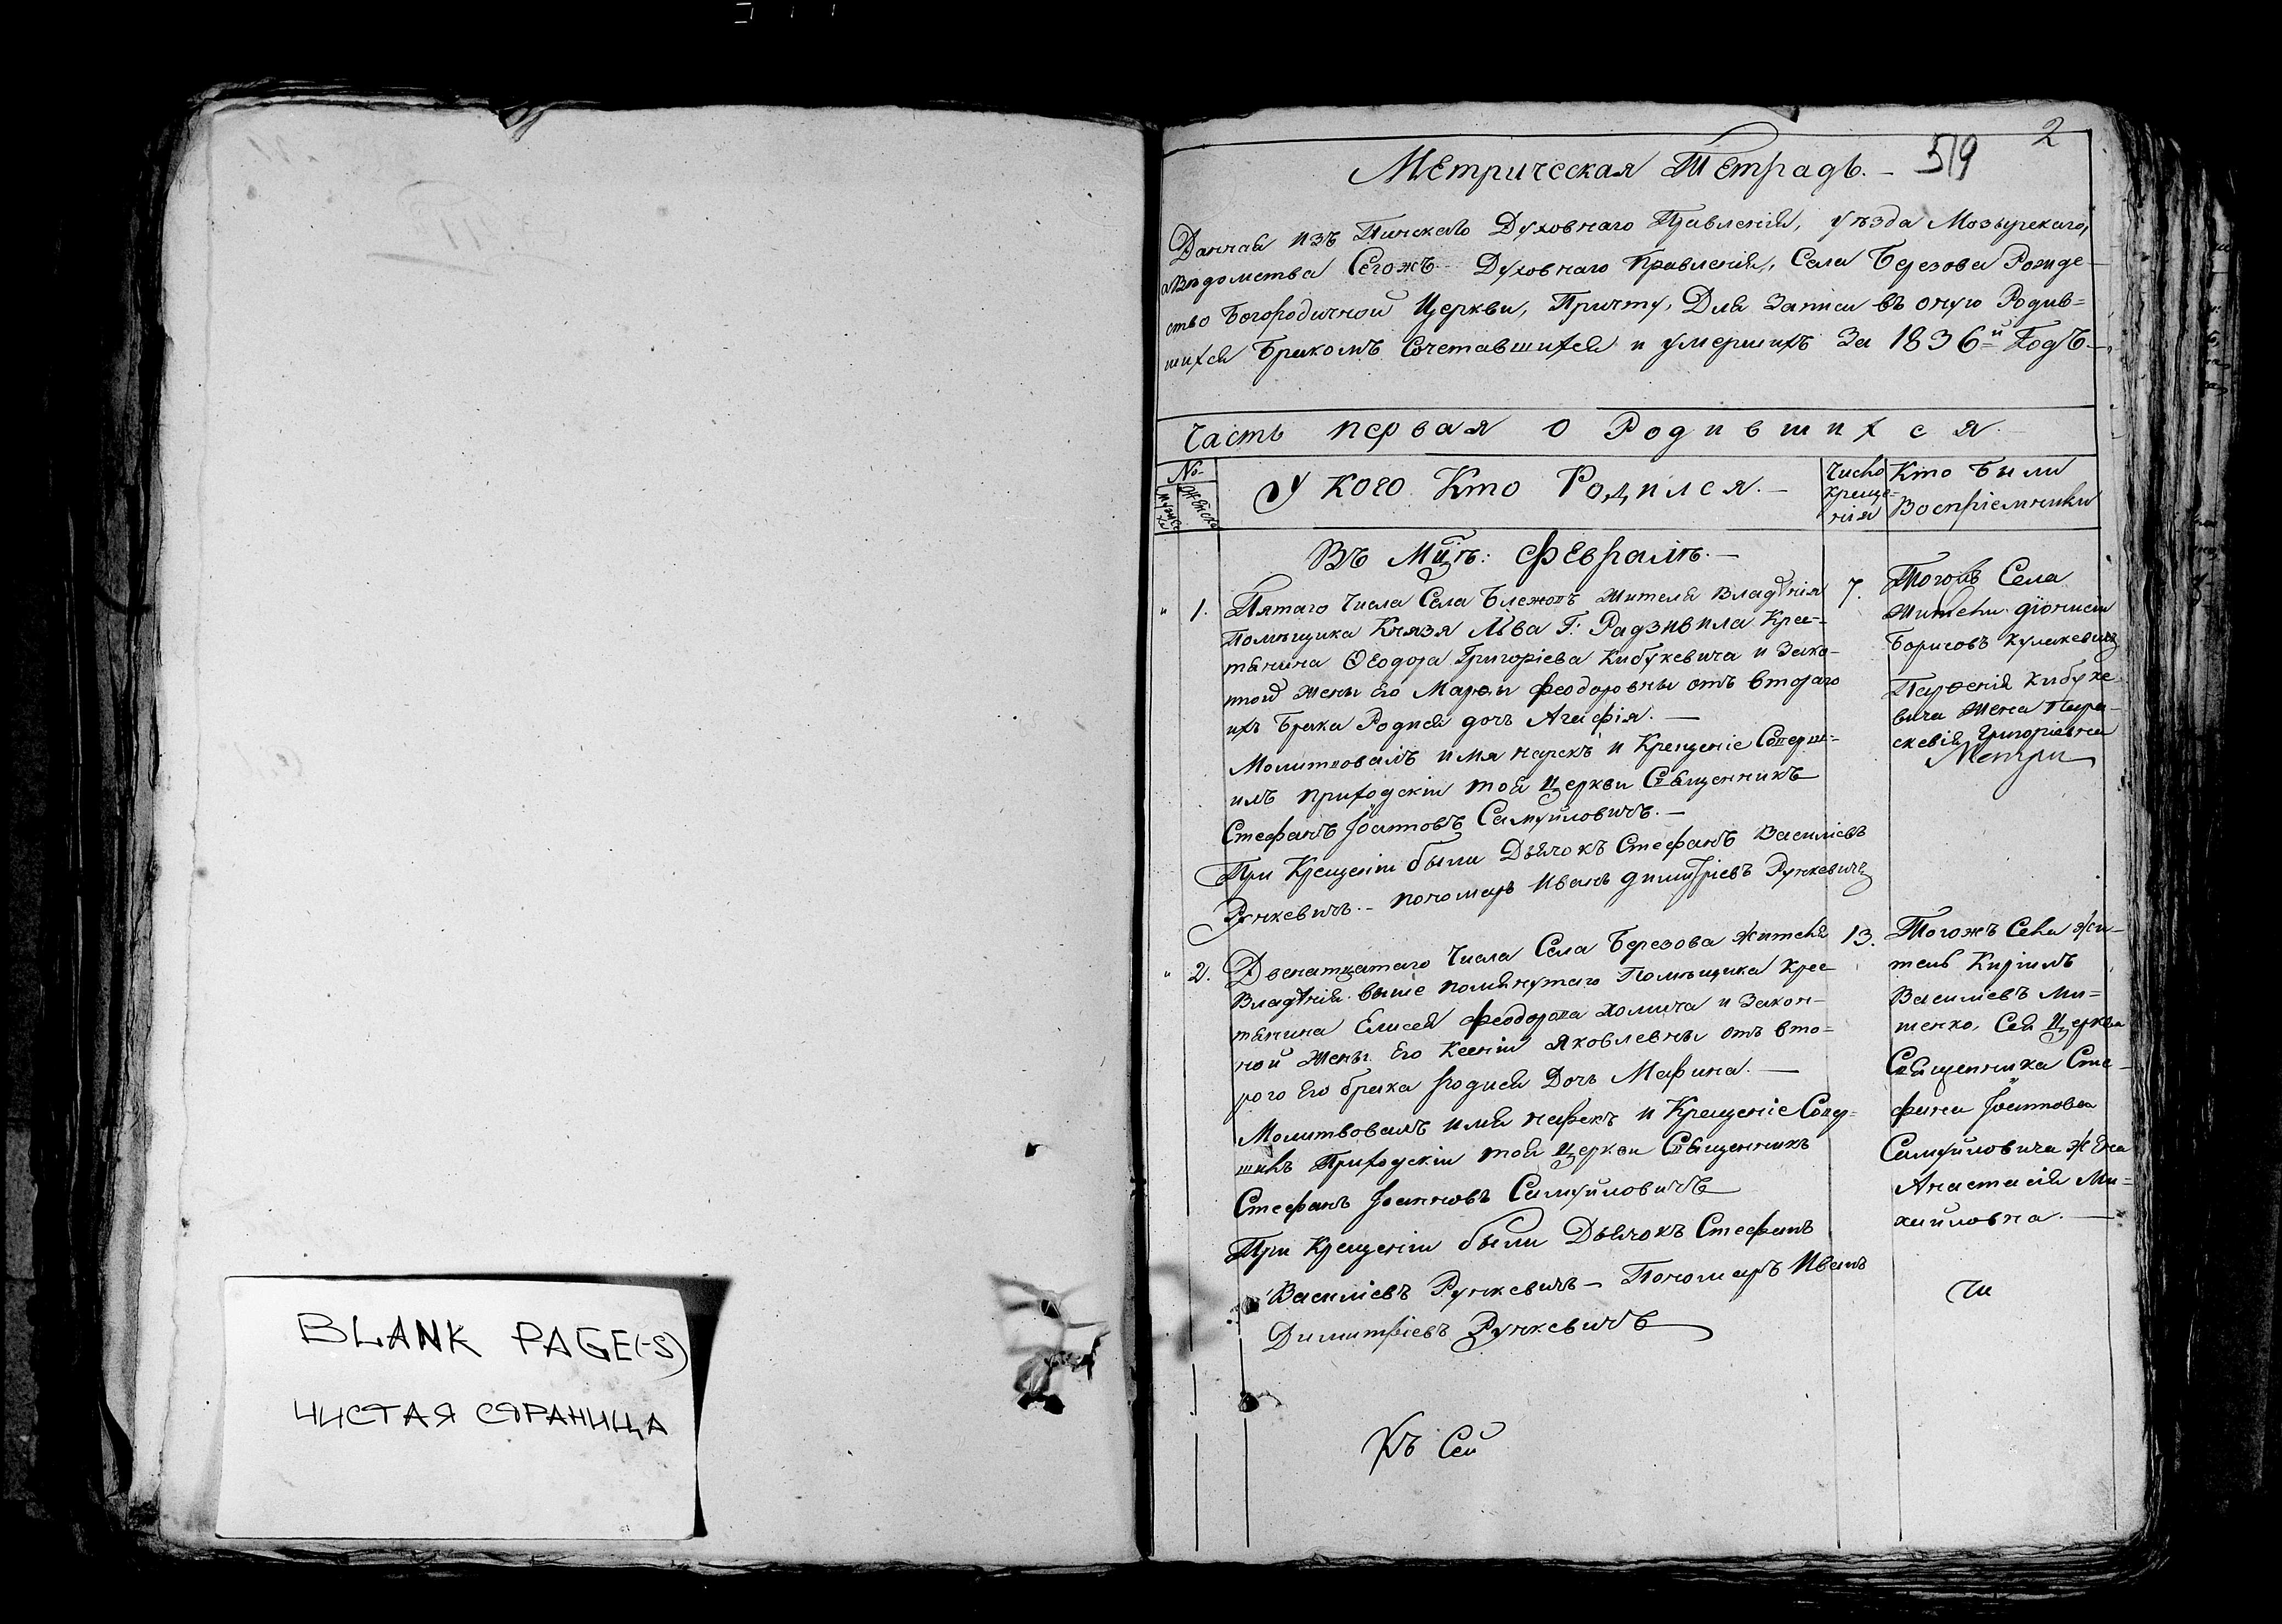 BLANK PAGE(-S)
ЧИСТАЯ СТРАНИЦА
2
519
Метрическая Тетрадь. —
Данная изъ Пинскаго Духовнаго Правленія, уѣзда Мозырскаго,
Вѣдомства Сегожъ Духовнаго Правленія, Села Березова Рожде-
ство Богородичной Церкви, Причту, Для Записи въ оную Родив=
шихся Бракомъ Сочетавшихся и умершихъ За 1836й Годъ —
Часть первая о Родившихся. —
No
мужеск
женска
У кого Кто Родился. —
Число
креще-
нія
Кто Были
Воспріемники
Въ Мцѣ: Февралѣ. —
" 1. Пятаго Числа Села Бежовъ Жителя Владѣнія
Помѣщика Князя Льва Г: Радзивила Крес-
тянина Ѳеодора Григоріева Кибукевича и Зако-
нной Жены Его Марѳы Феодоровны отъ втораго
ихъ Брака Родися дочъ Агафія. —
Молитвовалъ имя нарекъ и Крещеніе Соверш=
илъ приходскіи той Церкви Священникъ
Стефанъ Іоанновъ Самуйловичъ. —
При Крещеніи были Дьячокъ Стефанъ Василіевъ
Рункевичъ. — пономаръ Иванъ Димитріевъ Рункевичъ
7. Тогожъ Села
Жители Діонисій
Борисовъ Кулакевичъ
Парѳенія Кибуке-
вича Жена Пара-
скевія Григоріевна
Метри
" 2. Двенатцатаго Числа Села Березова Жителя
Владѣнія выше помянутаго Помѣщика Крес
тянина Елисея Феодорова Хомича и Закон-
ной Жены Его Ксеніи Яковлевны отъ вто-
рого Его брака родися Дочъ Марина. —
Молитвовалъ имя нарекъ и Крещеніе Совер=
шилъ Приходскіи той Церкви Священникъ
Стефанъ Іоанновъ Самуйловичъ
При Крещеніи были Дьячокъ Стефанъ
Василіевъ Рункевичъ — Пономаръ Иванъ
Димитріевъ Рункевичъ
13. Тогожъ Села Жи-
тель Кирилъ
Василіевъ Ми=
шенко, Сей Церкви
Священника Сте-
фана Іоаннова
Самуйловича Жена
Анастасія Ми=
хайловна. —
Къ Сей